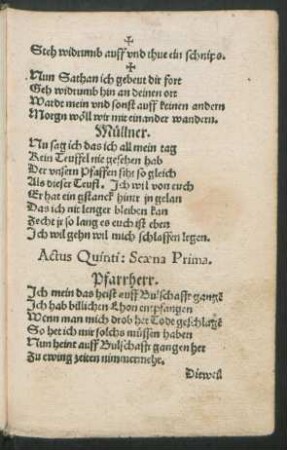 ✠
Steh widrumb auff vnd thue ein schnips.
✠
Nun Sathan ich gebeut dir fort
Geh widrumb hin an deinen ort
Wardt mein vnd sonst auff keinen andern
Morgn wöll wir mit einander wandern.
Müllner.
Nu sag ich das ich all mein tag
Kein Teuffel nie gesehen hab
Der vnsern Pfaffen siht so gleich
Als dieser Teufl. Ich wil von euch
Er hat ein gstanck hintr jn gelan
Das ich nit lenger bleiben kan
Zecht jr so lang es euch ist eben
Ich wil gehn wil mich schlaffen legen.
Actus Quinti: Scæna Prima.
Pfarrherr.
Ich mein das heist auff Bulschafft gangē
Ich hab billichen Lhon entpfangen
Wenn man mich drob het Tode geschlagē
So het ich mir solchs müssen haben
Nun heint auff Bulschafft gangen her
Zu ewing zeiten nimmermehr.
Diewéil